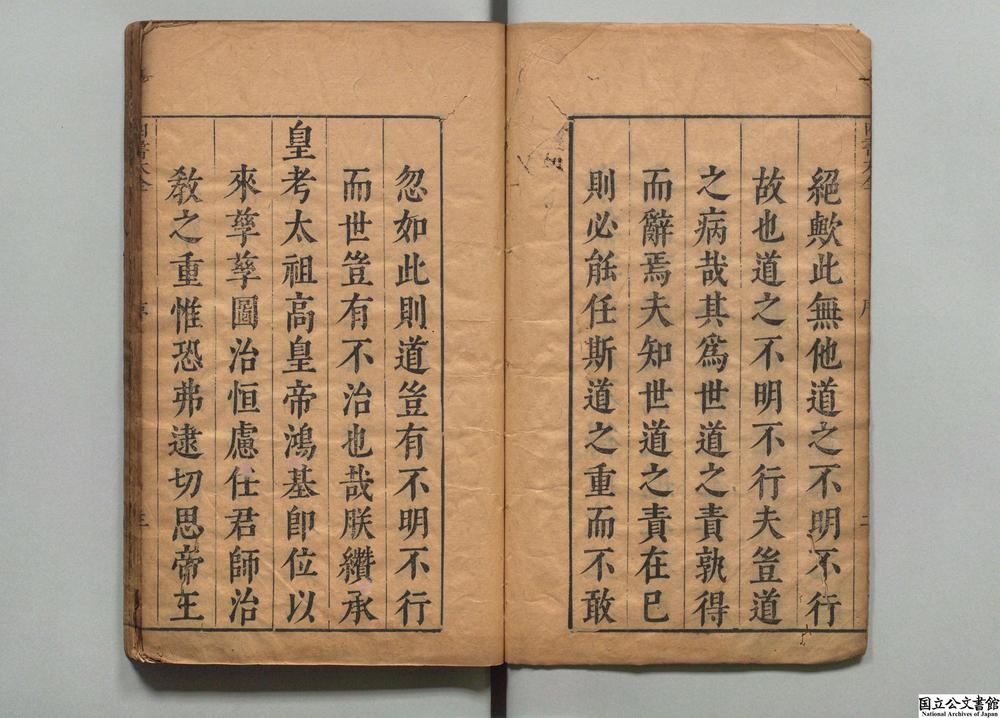 絕歟此無他道之不明不行
故也道之不明不行夫豈道
之病哉其為世道之責孰得
而辭焉夫知世道之責在已
則必能任斯道之重而不敢
忽如此則道豈有不明不行
而世豈有不治也哉朕纘承
皇考太祖高皇帝鴻基即位以
來孳孳圖治恒慮任君師治
敎之重惟恐弗逮切思帝王
国立公文書館
National Archives of Japan